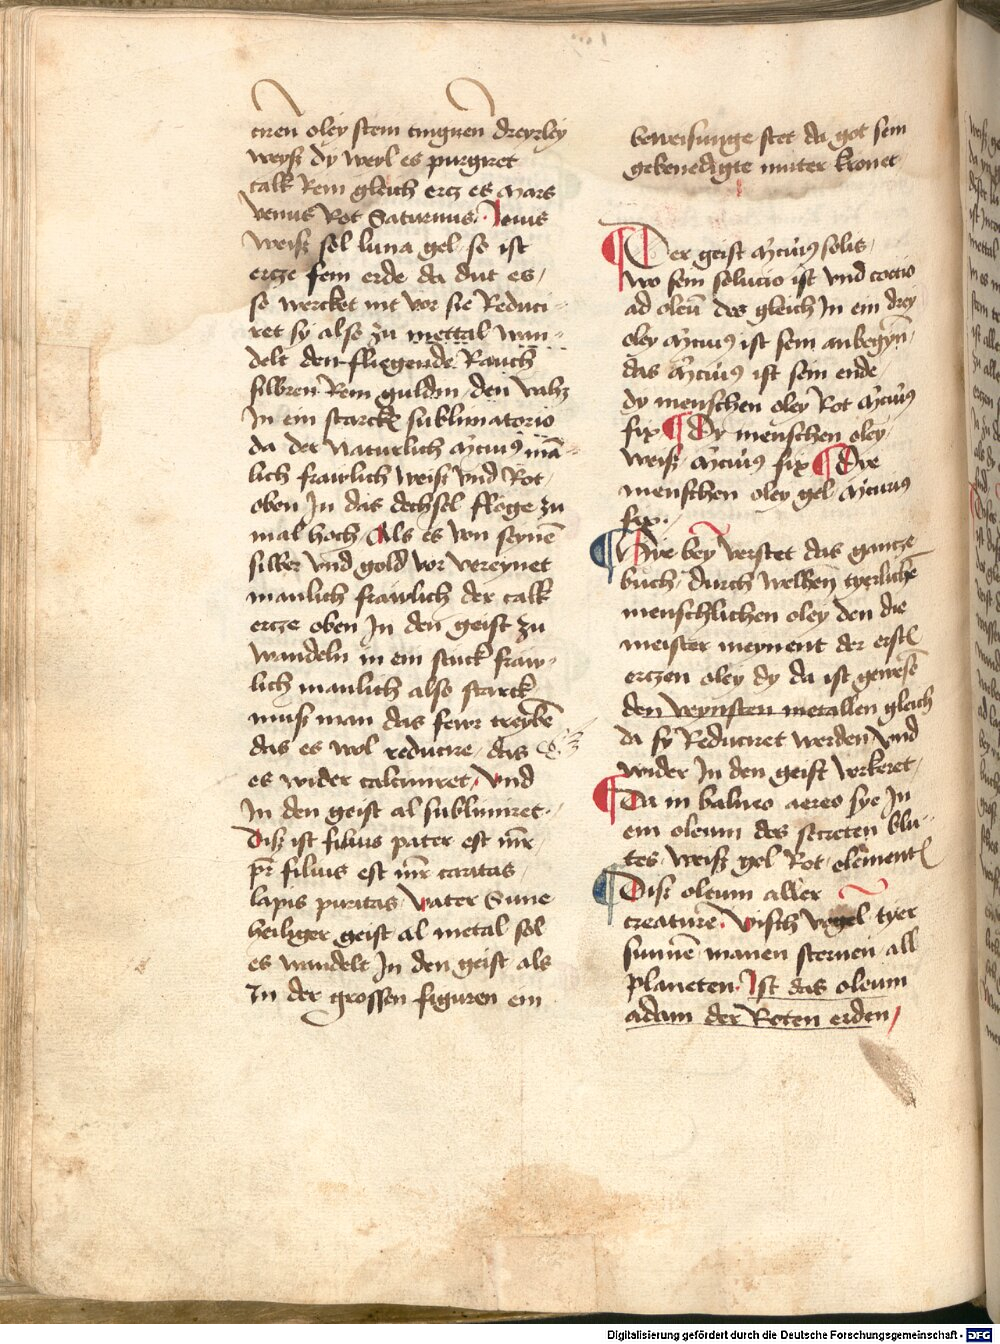 ciren oley stein tingiren dreyrley
weysz dy weyl es purgiret
calk Rein gleich ercz es mars
venus Rot Saturnus Jovis
weisz sol luna gel so ist
ercze sein erde da dut es
so wercket nit vor sie Reduci-
ret sy also zu mettal wan-
delt den fligende Rauch
silbren Rein guldin den
In ein starcke sublimatorio
da der naturlich mēciuꝰ mā-
lich frawlich weisz vnd Rot
oben In das dechsel flöge zu
mal hoch Als es von seynē
silber vnd gold vor vereynet
manlich frawlich der calk
ercze oben In den geist zu
wandeln in ein stuck fraw-
lich manlich also starck
musz man das fewr treybē
das es wol reducire das
es wider calciniret Vnd
In den geist al sublimiret
Disz ist filius pater est mr̄
pr̄ filius est mr̄ caritas
lapis puritas Vater Sune
heiliger geist al metal sol
es wandelt In den geist als
In der grossen figuren ein
beweisunge stet da got sein
gebenedigte muter kronet
¶ Der geist mēciuꝰ solis
wo sein solucio ist vnd coctio
ad oleū des gleich In ein drey
oley mēciuꝰ ist sein anbegyn̄
das mēciuꝰ ist sein ende
dy menschen oley Rot mēciuꝰ
fix ¶ Dy menschen oley
weisz mēciuꝰ fix ¶ Dye
menschen oley gel mēciuꝰ
fix
¶ Hye bey verstet das gantze
buch durch welhen tyerlichē
menschlichen oley den die
meister meynent der erstē
ertzen oley dy da ist gewesē
den veynsten metallen gleich
da sy Reduciret werden vnd
wider In den geist verkeret
¶ Da in balneo aereo sye In
ein oleum des secreten blu-
tes weisz gel Rot elementē
¶ Disz oleum aller
creature visch vogel tyer
sunnē manen sternen all
planeten Ist das oleum
adam der Roten erden
Digitalisierung gefördert durch die Deutsche Forschungsgemeinschaft - DFG